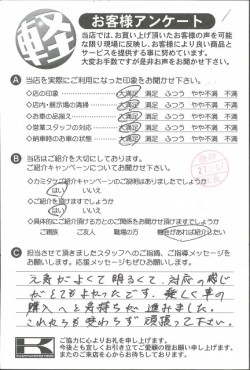 軽
お客様アンケート
当店では、お買い上げ頂いたお客様の声を可能
な限り現場に反映し、お客様により良い商品と
サービスを提供する事に努めています。
大変お手数ですが是非お声をお聞かせ下さい。
A 当店を実際にご利用になった印象をお聞かせ下さい。
◇店の印象 大満足 満足 ふつう やや不満 不満
◇店内・展示場の清掃 大満足 満足 ふつう やや不満 不満
◇お車の品揃え 大満足 満足 ふつう やや不満 不満
◇営業スタッフの対応 大満足 満足 ふつう やや不満 不満
◇納車時のお車の状態 大満足 満足 ふつう やや不満 不満
B 当店はご紹介を大切にしております。
ご紹介キャンペーンについてお聞かせ下さい。
◇カミタケご紹介キャンペーンのご説明はありましたでしょうか
はい いいえ
◇ご紹介を頂けますでしょうか
はい いいえ
◇具体的にご紹介頂ける方とのご関係をお聞かせ頂けますでしょうか
ご親戚 ご友人 職場の方 機会があれば紹介したい
C 担当させて頂きましたスタッフへのご指摘、ご指導メッセージを
お願いします。応援メッセージもぜひお願いします。
元気がよくて明るくて、対応の感じ
がとてもよかったです。楽しく車の
購入へと気持ちが進みました。
これからも変わらず頑張って下さい。
K
ご協力に心よりお礼を申し上げます。
今後とも宜しくお引き立てご愛顧の程お願い申し上げます。
またのご来店を心からお待ちしております。